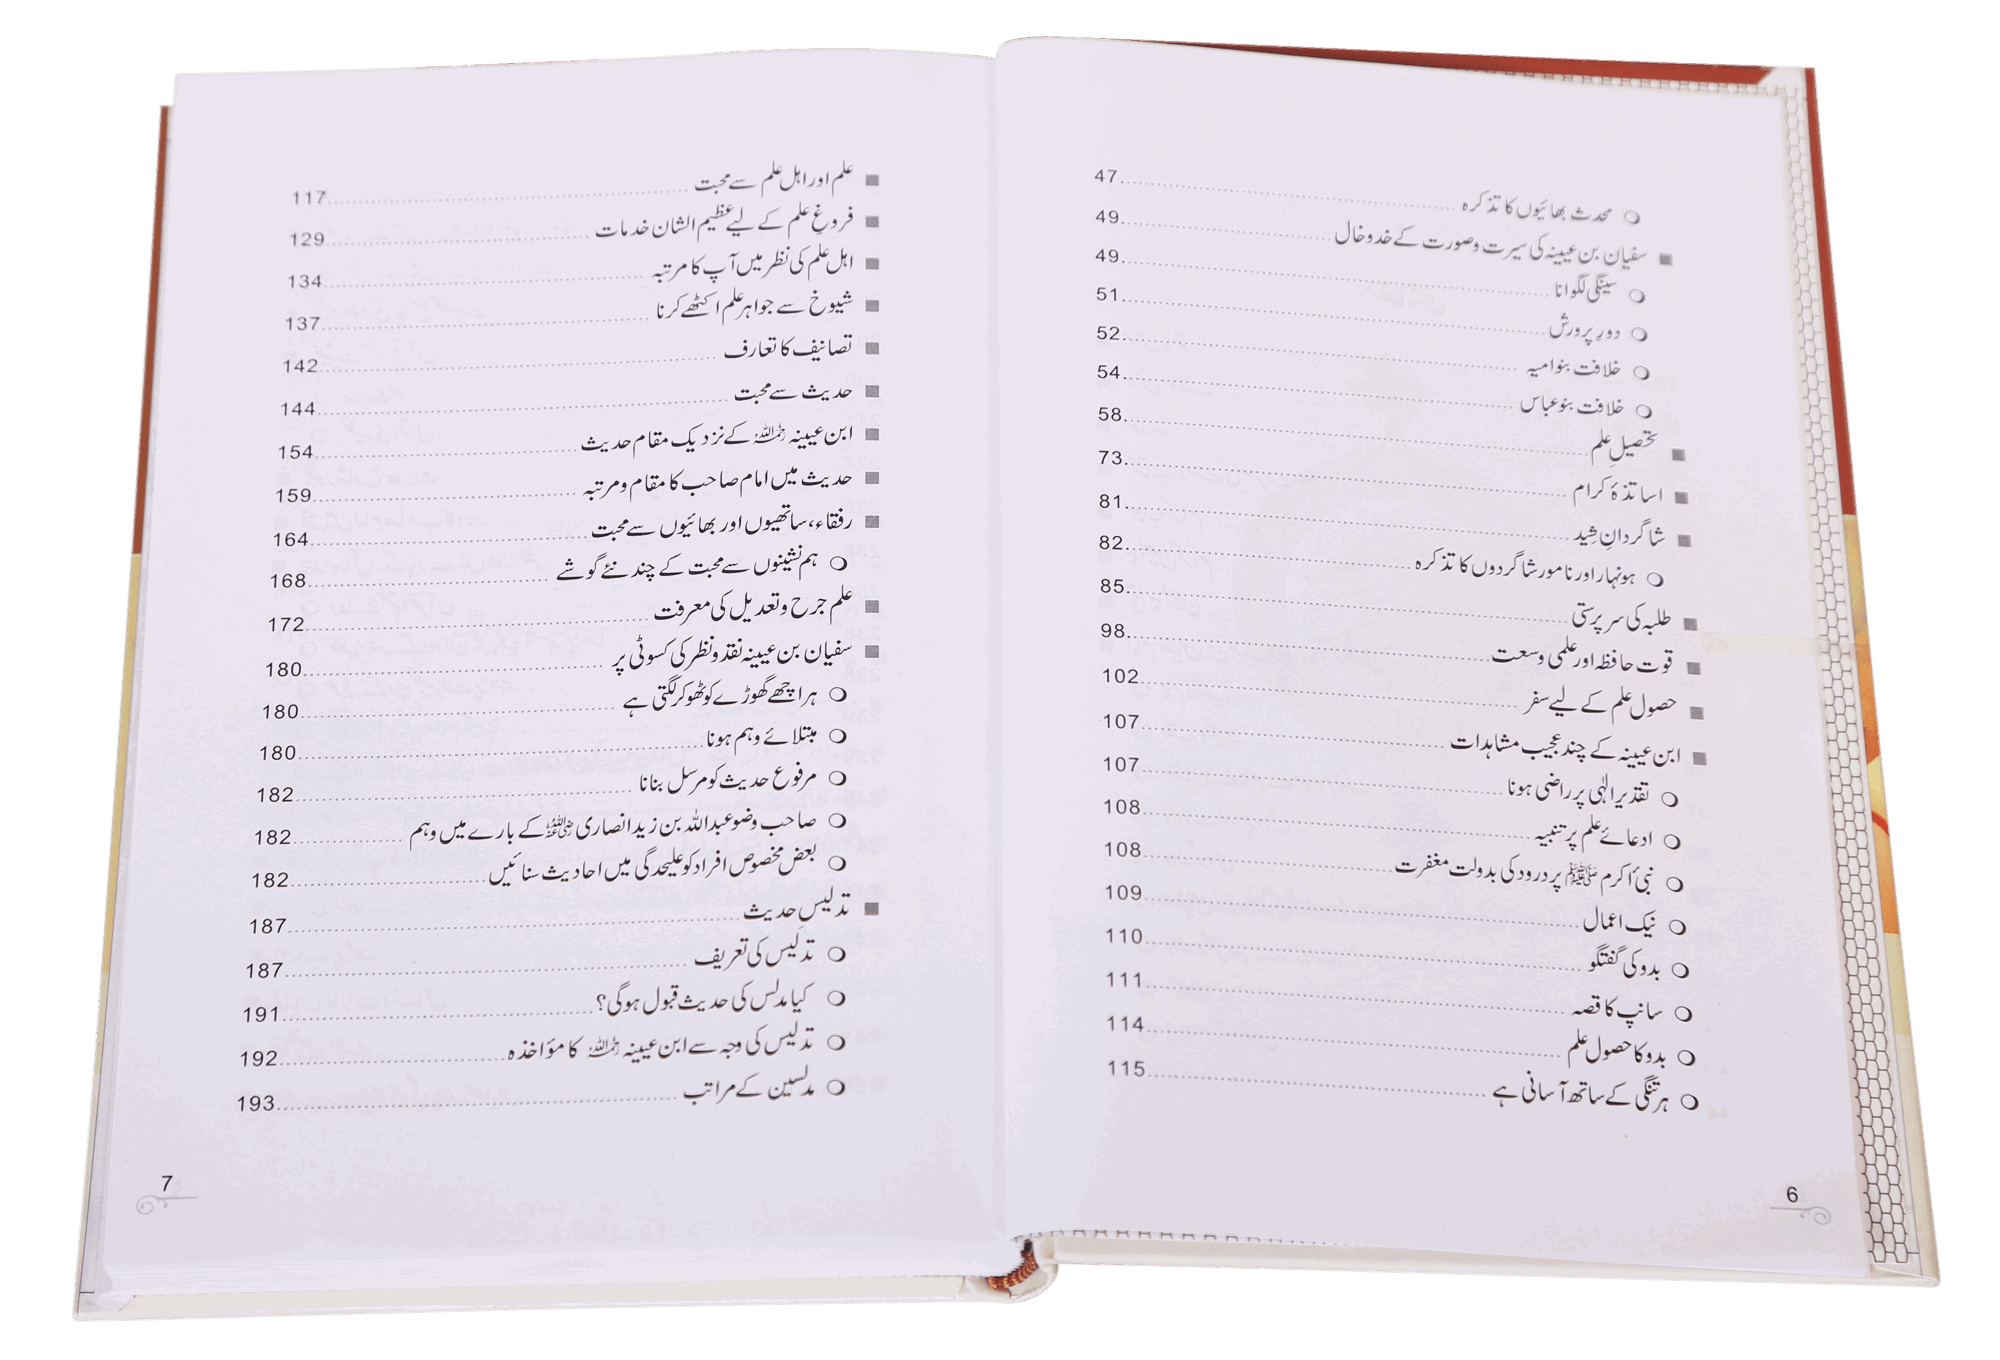 ○ محدث بھائیوں کا تذکرہ 47
■ سفیان بن عیینہ کی سیرت و صورت کے خدوخال 49
○ سینگی لگوانا 49
○ دورِ پرورش 51
○ خلافت بنوامیہ 52
○ خلافت بنوعباس 54
■ تحصیلِ علم 58
■ اساتذۂ کرام 73
■ شاگردانِ شید 81
○ ہونہار اور نامور شاگردوں کا تذکرہ 82
■ طلبہ کی سرپرستی 85
■ قوت حافظہ اور علمی وسعت 98
■ حصول علم کے لیے سفر 102
■ ابن عیینہ کے چند عجیب مشاہدات 107
○ تقدیر الٰہی پر راضی ہونا 107
○ ادعائے علم پر تنبیہ 108
○ نبیٔ اکرم ﷺ پر درود کی بدولت مغفرت 108
○ نیک اعمال 109
○ بدو کی گفتگو 110
○ سانپ کا قصہ 111
○ بدو کا حصول علم 114
○ ہر تنگی کے ساتھ آسانی ہے 115
6
■ علم اور اہل علم سے محبت 117
■ فروغِ علم کے لیے عظیم الشان خدمات 129
■ اہل علم کی نظر میں آپ کا مرتبہ 134
■ شیوخ سے جواہر علم اکٹھے کرنا 137
■ تصانیف کا تعارف 142
■ حدیث سے محبت 144
■ ابن عیینہ رحمہ اللہ کے نزدیک مقام حدیث 154
■ حدیث میں امام صاحب کا مقام و مرتبہ 159
■ رفقاء، ساتھیوں اور بھائیوں سے محبت 164
○ ہم نشینوں سے محبت کے چند نئے گوشے 168
■ علم جرح و تعدیل کی معرفت 172
■ سفیان بن عیینہ نقد و نظر کی کسوٹی پر 180
○ ہر اچھے گھوڑے کو ٹھوکر لگتی ہے 180
○ مبتلائے وہم ہونا 180
○ مرفوع حدیث کو مرسل بنانا 182
○ صاحب وضو عبداللہ بن زید انصاری رضی اللہ عنہ کے بارے میں وہم 182
○ بعض مخصوص افراد کو علیحدگی میں احادیث سنائیں 182
■ تدلیسِ حدیث 187
○ تدلیس کی تعریف 187
○ کیا مدلس کی حدیث قبول ہوگی؟ 191
○ تدلیس کی وجہ سے ابن عیینہ رحمہ اللہ کا مؤاخذہ 192
○ مدلسین کے مراتب 193
7